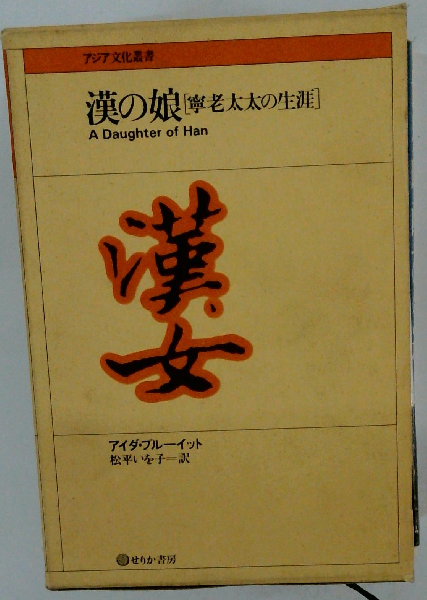 アジア文化叢書
漢の娘[寧老太太の生涯]
A Daughter of Han
漢
女
アイダ・プルーイット
松平いを子=訳
せりか書房